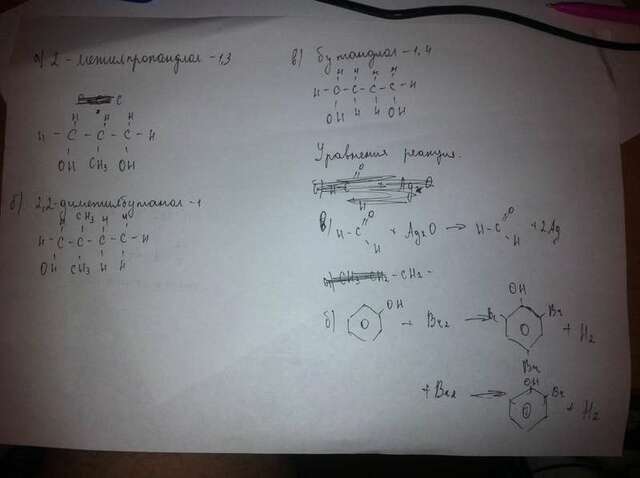 а) 2-метилпропандиол-1,3
H H H
H - C - C - C - H
OH CH3 OH
б) 2,2-диметилбутанол-1
H CH3 H H
H - C - C - C - C - H
OH CH3 H H
в) бутандиол-1,4
H H H H
H - C - C - C - C - H
OH H H OH
Уравнения реакция.
в) H - C O H + Ag2O → H - C O H + 2Ag
-CH2-
б) OH + Br2 → OH Br Br Br + H2
+ Br2 → OH Br + H2